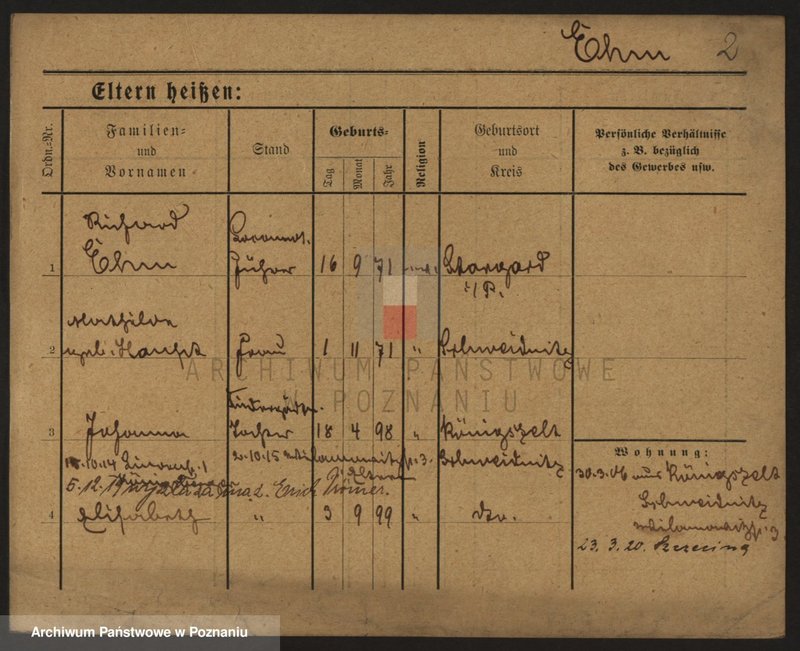 Ehm 2
Eltern heißen:
Ordn.-Nr.
Familien-
und
Vornamen
Stand
Geburts-
Tag
Monat
Jahr
Religion
Geburtsort
und
Kreis
Persönliche Verhältnisse
z. B. bezüglich
des Gewerbes usw.
Richard Locomot.
1 Ehm Führer 16 9 71 Stargard
i/P.
Mathilde
2 geb. Frau 1 11 71 " Schweidnitz
ARCHIWUM PAŃSTWOWE
W POZNANIU
3 Johanna Tochter 18 4 98 " Königszelt
10.14 2.10.15 3. Schweidnitz
5.12. Erich
4 Elisabeth " 3 9 99 " do.
Wohnung:
30.3.06 aus Königszelt
Schweidnitz
3
23. 3. 20.
Archiwum Państwowe w Poznaniu